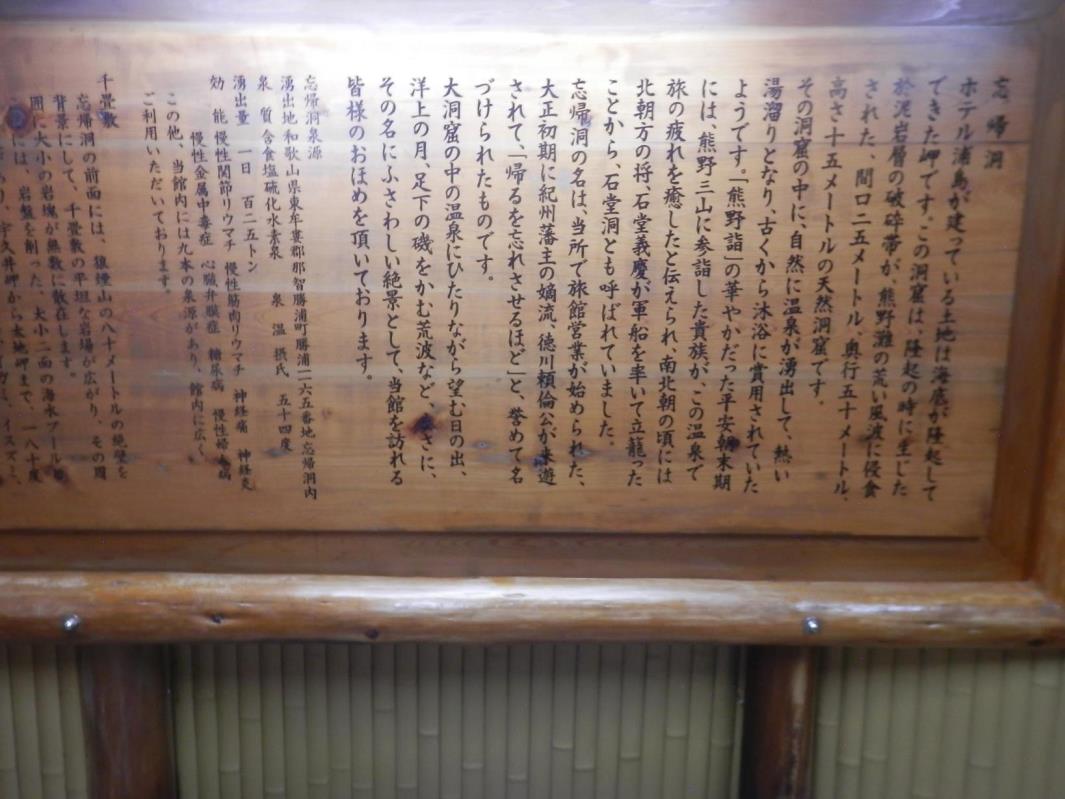 忘帰洞
ホテル浦島が建っている土地は海底が隆起して
できた岬です。この洞窟は、隆起の時に生じた
於泥岩層の破砕帯が、熊野灘の荒い風波に侵食
された、間口二五メートル、奥行五十メートル、
高さ十五メートルの天然洞窟です。
その洞窟の中に、自然に温泉が湧出して、熱い
湯溜りとなり、古くから沐浴に賞用されていた
ようです。「熊野詣」の華やかだった平安朝末期
には、熊野三山に参詣した貴族が、この温泉で
旅の疲れを癒したと伝えられ、南北朝の頃には
北朝方の将、石堂義慶が軍船を率いて立籠った
ことから、石堂洞とも呼ばれていました。
忘帰洞の名は、当所で旅館営業が始められた、
大正初期に紀州藩主の嫡流、徳川頼倫公が来遊
されて、「帰るを忘れさせるほど」と、誉めて名
づけられたものです。
大洞窟の中の温泉にひたりながら望む日の出、
洋上の月、足下の磯をかむ荒波など、まさに、
その名にふさわしい絶景として、当館を訪れる
皆様のおほめを頂いております。
忘帰洞泉源
湧出地 和歌山県東牟婁郡那智勝浦町勝浦一一六五番地忘帰洞内
泉質 含食塩硫化水素泉 泉温 摂氏 五十四度
湧出量 一日 百二五トン
効能 慢性関節リウマチ 慢性筋肉リウマチ 神経痛 神経炎
慢性金属中毒症 心臓弁膜症 糖尿病 慢性婦人病
この他、当館内には九本の泉源があり、館内に広く、
ご利用いただいております。
千畳敷
忘帰洞の前面には、狼煙山の八十メートルの絶壁を
背景にして、千畳敷の平坦な岩場が広がり、その周
囲に大小の岩塊が無数に散在します。
には、岩盤を削った、大小二面の海水プール
あり、宇久井岬から太地岬まで、一八十度